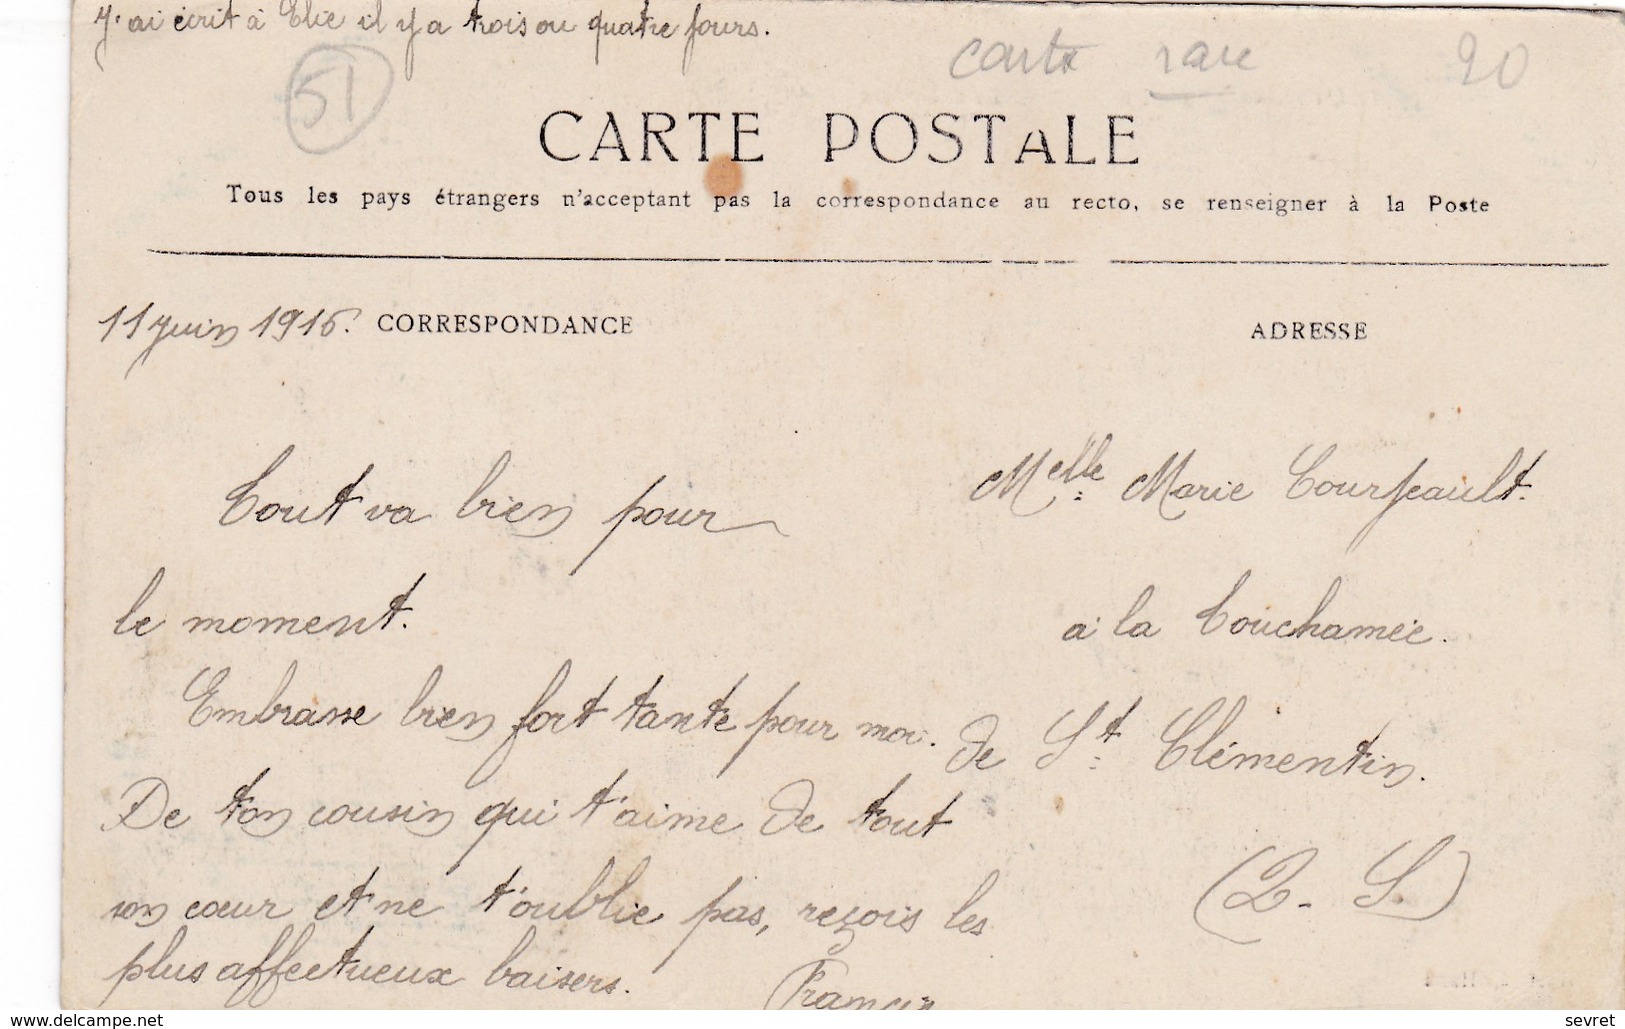 J'ai écrit à Elie il y a trois ou quatre jours.
carte rare 20
51
CARTE POSTALE
Tous les pays étrangers n'acceptent pas la correspondance au recto, se renseigner à la Poste
11 juin 1916. CORRESPONDANCE
Tout va bien pour
le moment.
Embrasse bien fort tante pour moi.
De ton cousin qui t'aime de tout
son cœur et ne t'oublie pas, reçois les
plus affectueux baisers.
Francis
ADRESSE
Melle Marie Tourpeault.
à la Touchamée.
de St Clémentin.
(2-S.)
https://www.delcampe.net
sevret